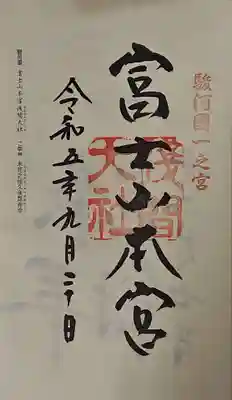 駿河國一之宮
富士山本宮
浅間大社
令和五年九月二十日